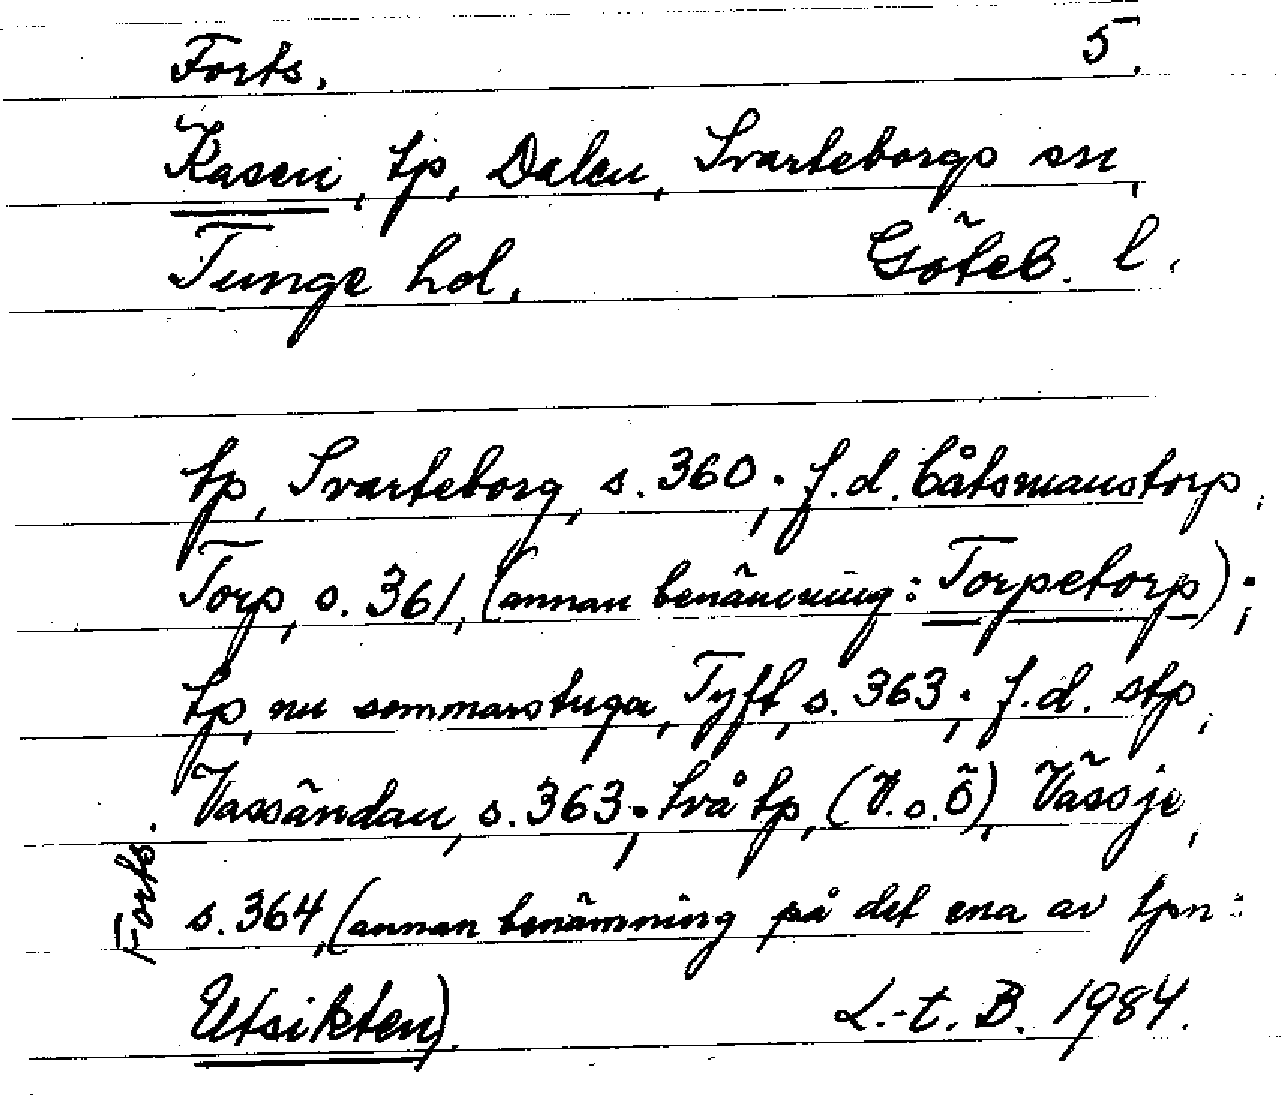 Forts. 5.
Kasen, tp, Dalen, Svarteborgs sn,
Tunge hd. Göteb. l.
tp, Svarteborg, s. 360; f.d. båtsmanstorp,
Torp, s. 361, (annan benämning: Torpetorp);
tp, nu sommarstuga, Tyft, s. 363; f.d. stp,
Vassändan, s. 363; två tp, (V. o. Ö), Vässje,
s. 364, (annan benämning på det ena av tpn:
Utsikten). L.-t. B. 1984.
Forts.